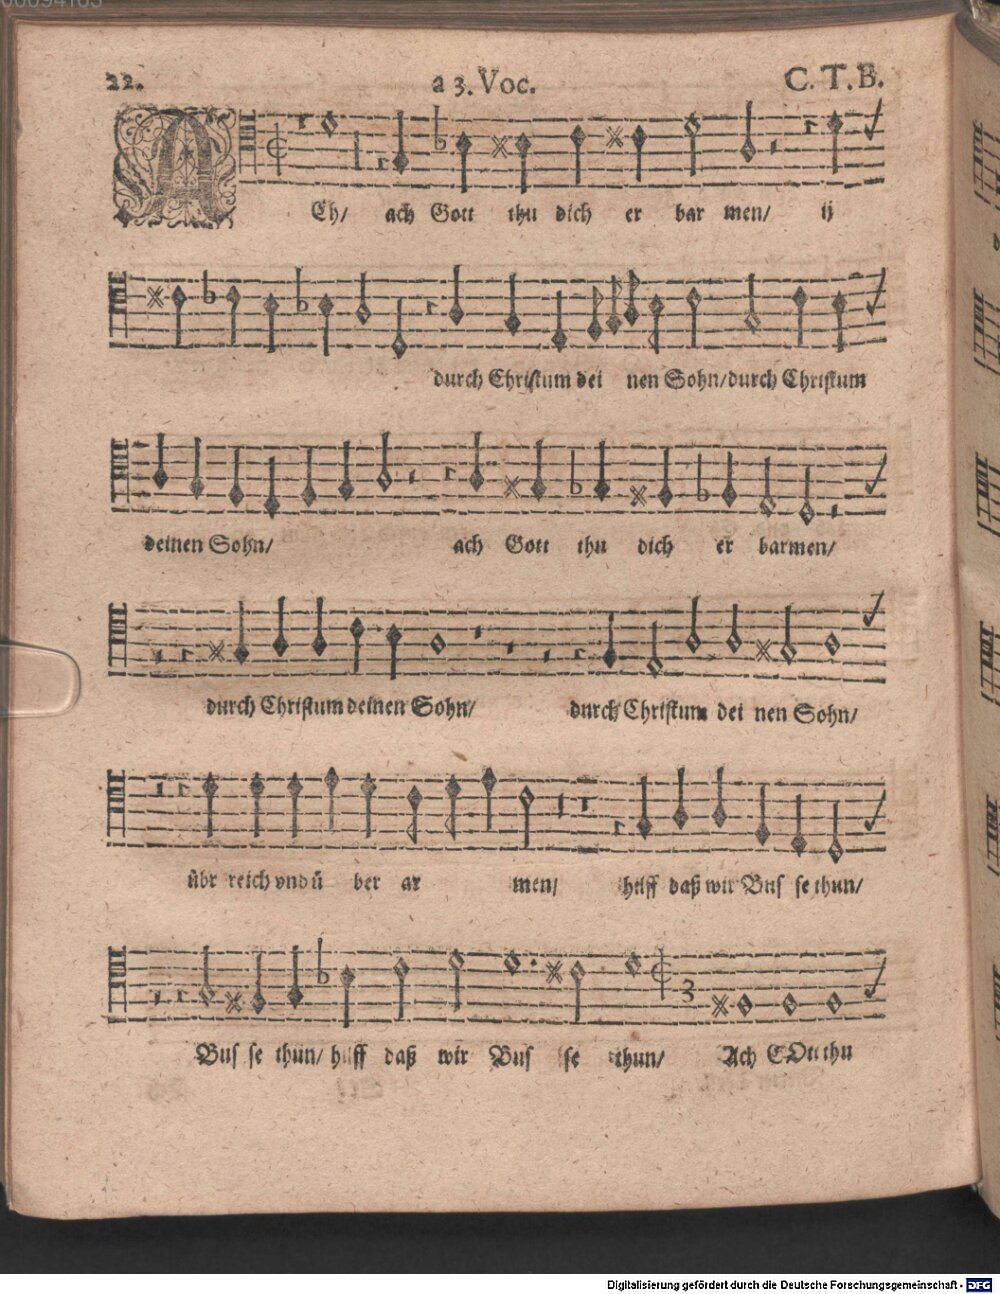 22. a 3. Voc. C. T. B.
ACh/ ach Gott thu dich er bar men/ ij
durch Christum dei nen Sohn/ durch Christum
deinen Sohn/ ach Gott thu dich er barmen/
durch Christum deinen Sohn/ durch Christum dei nen Sohn/
übr reich vnd ü ber ar men/ hilff daß wir Bus se thun/
Bus se thun/ hilff daß wir Bus se thun/ Ach GOtt thu
Digitalisierung gefördert durch die Deutsche Forschungsgemeinschaft - DFG